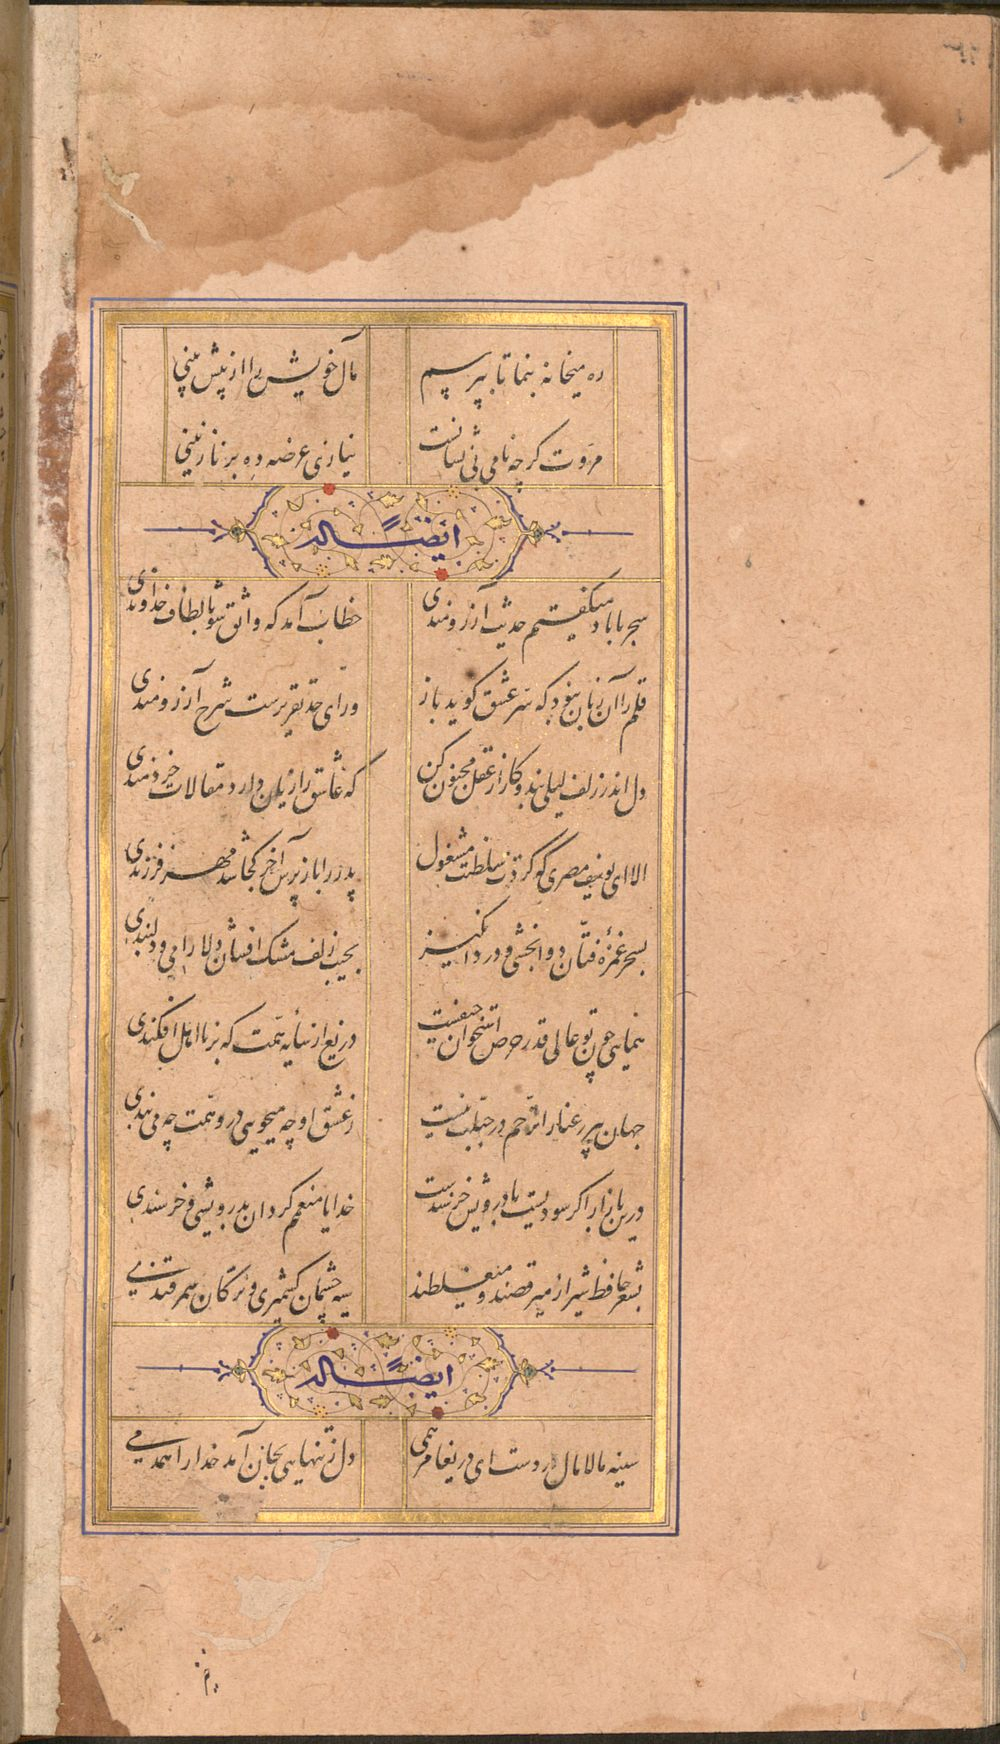 ره میخانه بنما تا بپرسم
مآل خویش را از پیش بینی
مروت گرچه نامی بی نشانست
نیازی عرضه ده بر نازنینی
ایضاً له
سحر با باد میگفتم حدیث آرزومندی
خطاب آمد که واثق شو بالطاف خداوندی
قلم را آن زبان نبود که سر عشق گوید باز
ورای حد تقریرست شرح آرزومندی
دل اندر زلف لیلی بند و کار از عقل مجنون کن
که عاشق را زیان دارد مقالات خردمندی
الا ای یوسف مصری که کردت سلطنت مشغول
پدر را باز پرس آخر کجا شد مهر فرزندی
بسحر غمزه فتان دوا بخشی و درد انگیز
بجیب زلف مشک افشان دلارامی و دلبندی
همایی چون تو عالی قدر حرص استخوان حیفست
دریغ از سایه همت که بر نااهل افکندی
جهان پیر رعنا را ترحم در جبلت نیست
ز عشق او چه میجویی درو همت چه می بندی
درین بازار اگر سودیست با درویش خرسندست
خدایا منعمم گردان بدرویشی و خرسندی
بشعر حافظ شیراز میرقصند و میغلطند
سیه چشمان کشمیری و ترکان سمرقندی
ایضاً له
سینه مالامال دردست ای دریغا مرهمی
دل ز تنهایی بجان آمد خدا را همدمی